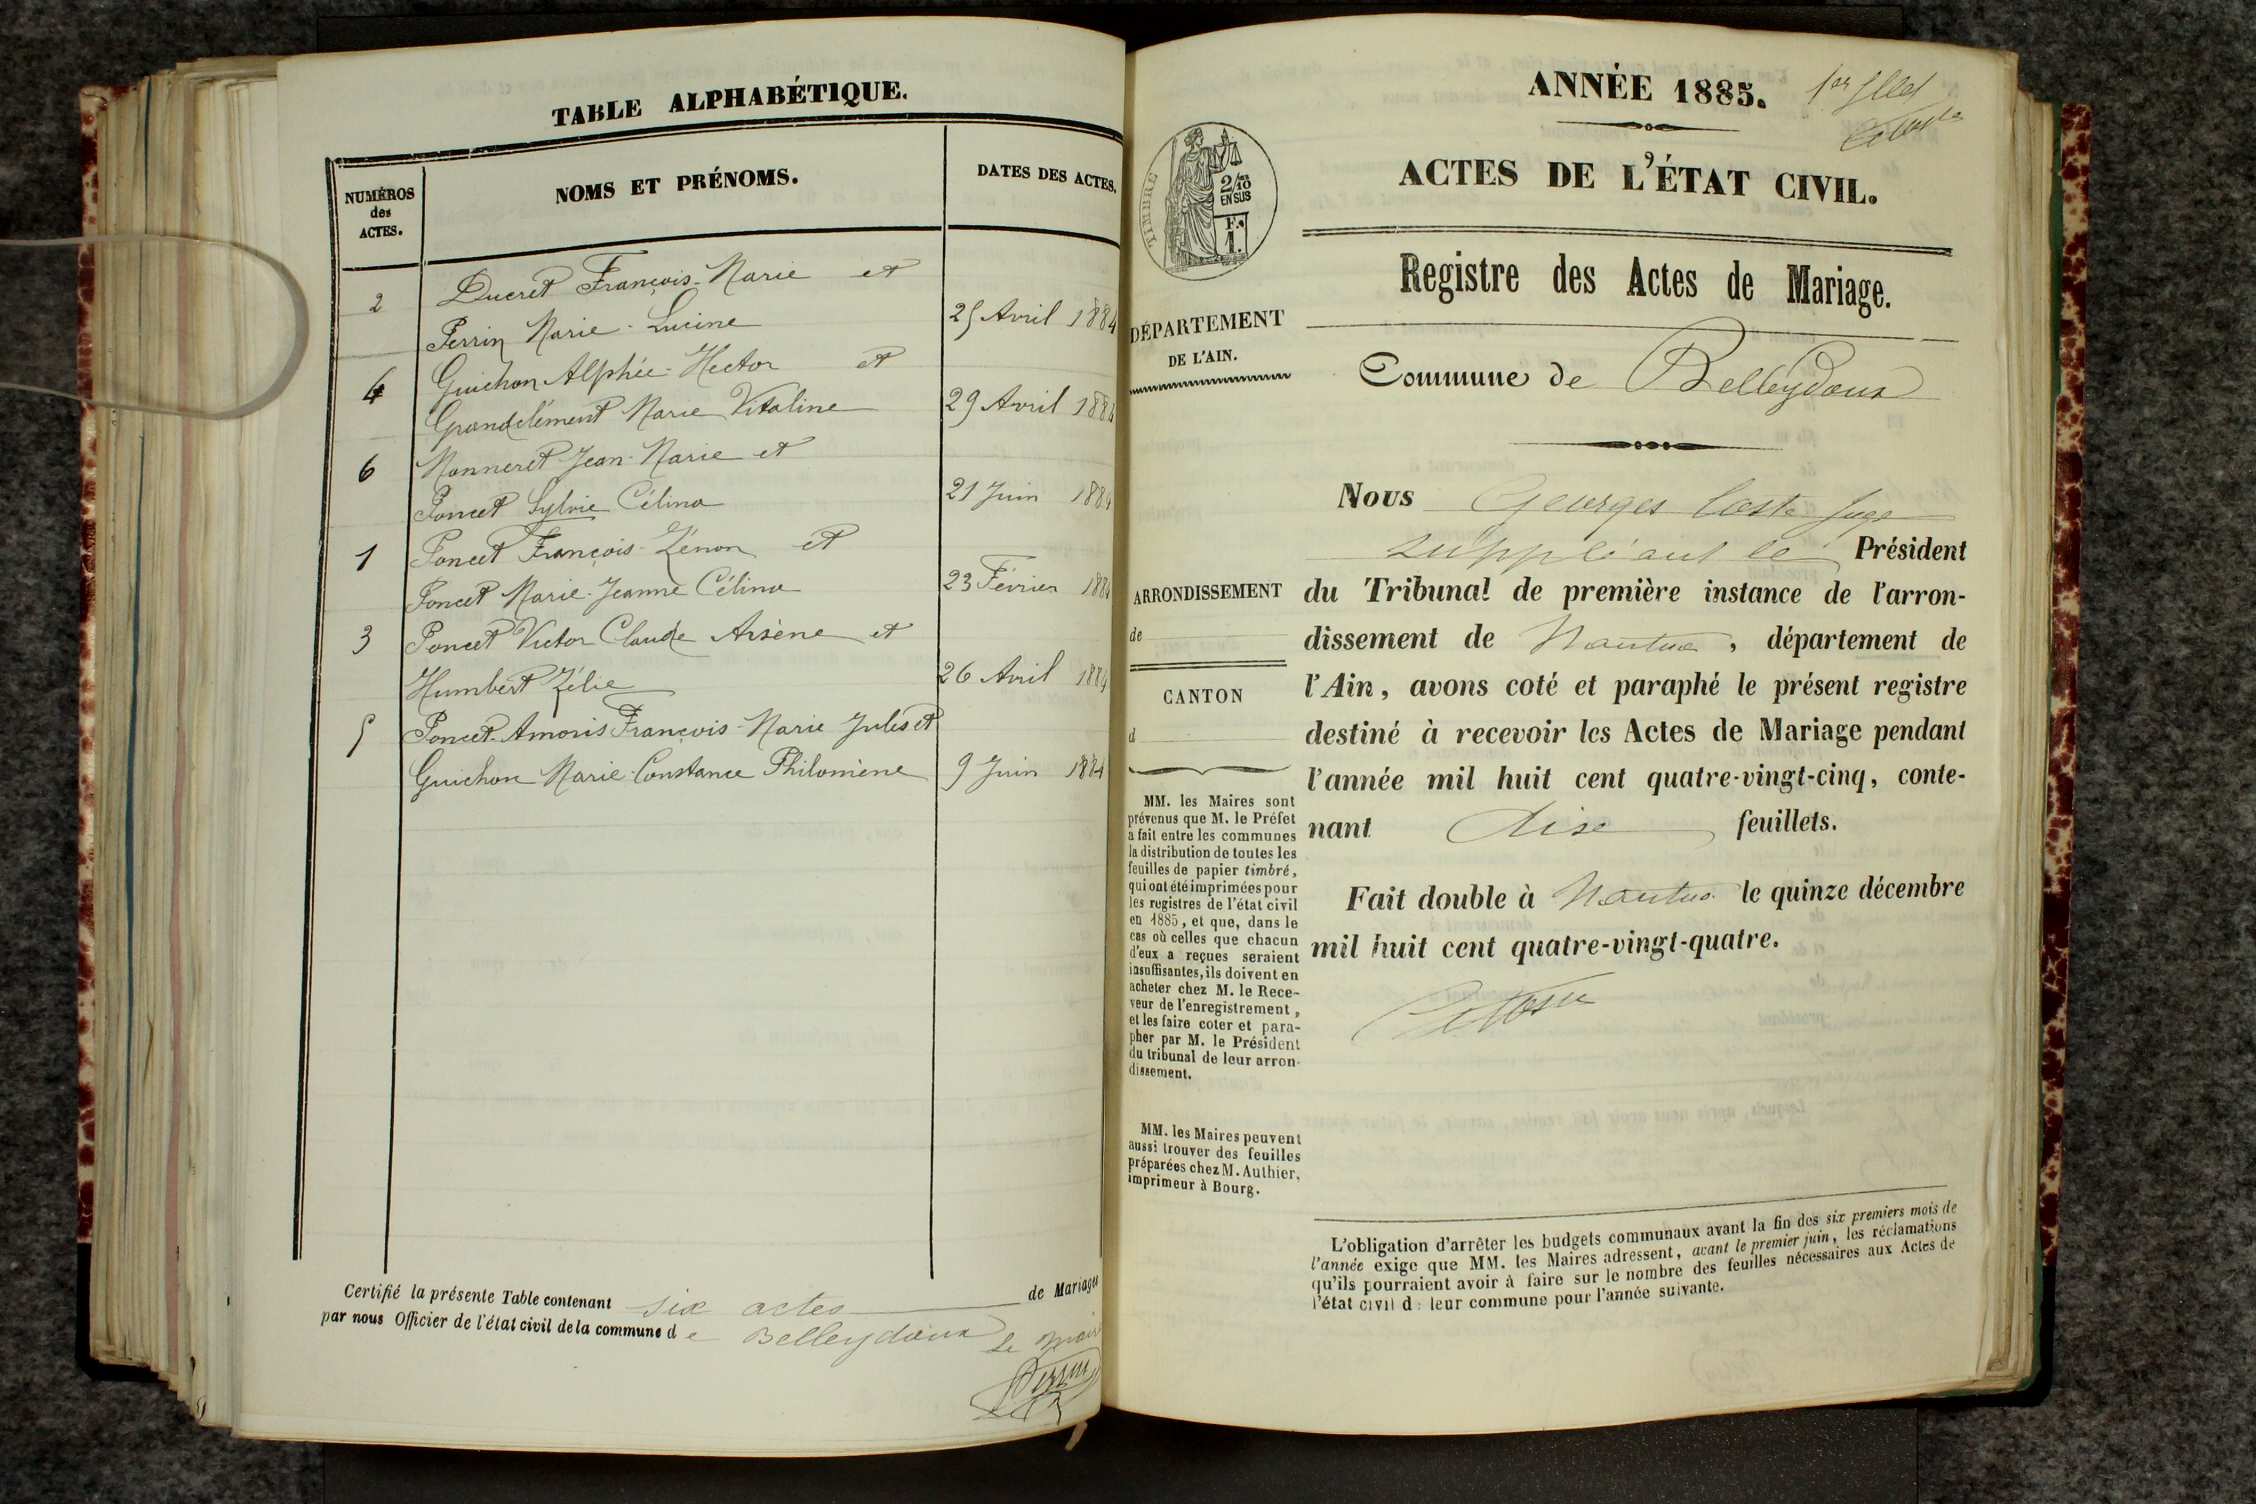 TABLE ALPHABÉTIQUE.
NUMÉROS
des
ACTES.
NOMS ET PRÉNOMS.
DATES DES ACTES.
2
Ducret François-Marie et
Perrin Marie-Lucine
25 Avril 1884
4
Guichon Alphée-Hector et
Grandclément Marie Vitaline
29 Avril 1884
6
Monneret Jean-Marie et
Poncet Sylvie Célina
21 Juin 1884
1
Poncet François-Zénon et
Poncet Marie-Jeanne Célina
23 Février 1884
3
Poncet Victor Claude Arsène et
Humbert Zélie
26 Avril 1884
5
Poncet-Amoris François-Marie Jules et
Guichon Marie-Constance Philomène
9 Juin 1884
Certifié la présente Table contenant six actes de Mariages
par nous Officier de l'état civil de la commune de Belleydoux
Le Maire
Perrin
ANNÉE 1885.
1er fllet
ACTES DE L'ÉTAT CIVIL.
TIMBRE
2/10
EN SUS
F.
1.
Registre des Actes de Mariage.
DÉPARTEMENT
DE L'AIN.
Commune de Belleydoux
Nous Georges Coste Juge
suppléant le Président
du Tribunal de première instance de l'arron-
dissement de Nantua, département de
l'Ain, avons coté et paraphé le présent registre
destiné à recevoir les Actes de Mariage pendant
l'année mil huit cent quatre-vingt-cinq, conte-
nant dise feuillets.
Fait double à Nantua le quinze décembre
mil huit cent quatre-vingt-quatre.
ARRONDISSEMENT
de
CANTON
d
MM. les Maires sont
prévenus que M. le Préfet
a fait entre les communes
la distribution de toutes les
feuilles de papier timbré,
qui ont été imprimées pour
les registres de l'état civil
en 1885, et que, dans le
cas où celles que chacun
d'eux a reçues seraient
insuffisantes, ils doivent en
acheter chez M. le Rece-
veur de l'enregistrement,
et les faire coter et para-
pher par M. le Président
du tribunal de leur arron-
dissement.
MM. les Maires peuvent
aussi trouver des feuilles
préparées chez M. Authier,
imprimeur à Bourg.
L'obligation d'arrêter les budgets communaux avant la fin des six premiers mois de
l'année exige que MM. les Maires adressent, avant le premier juin, les réclamations
qu'ils pourraient avoir à faire sur le nombre des feuilles nécessaires aux Actes de
l'état civil d: leur commune pour l'année suivante.